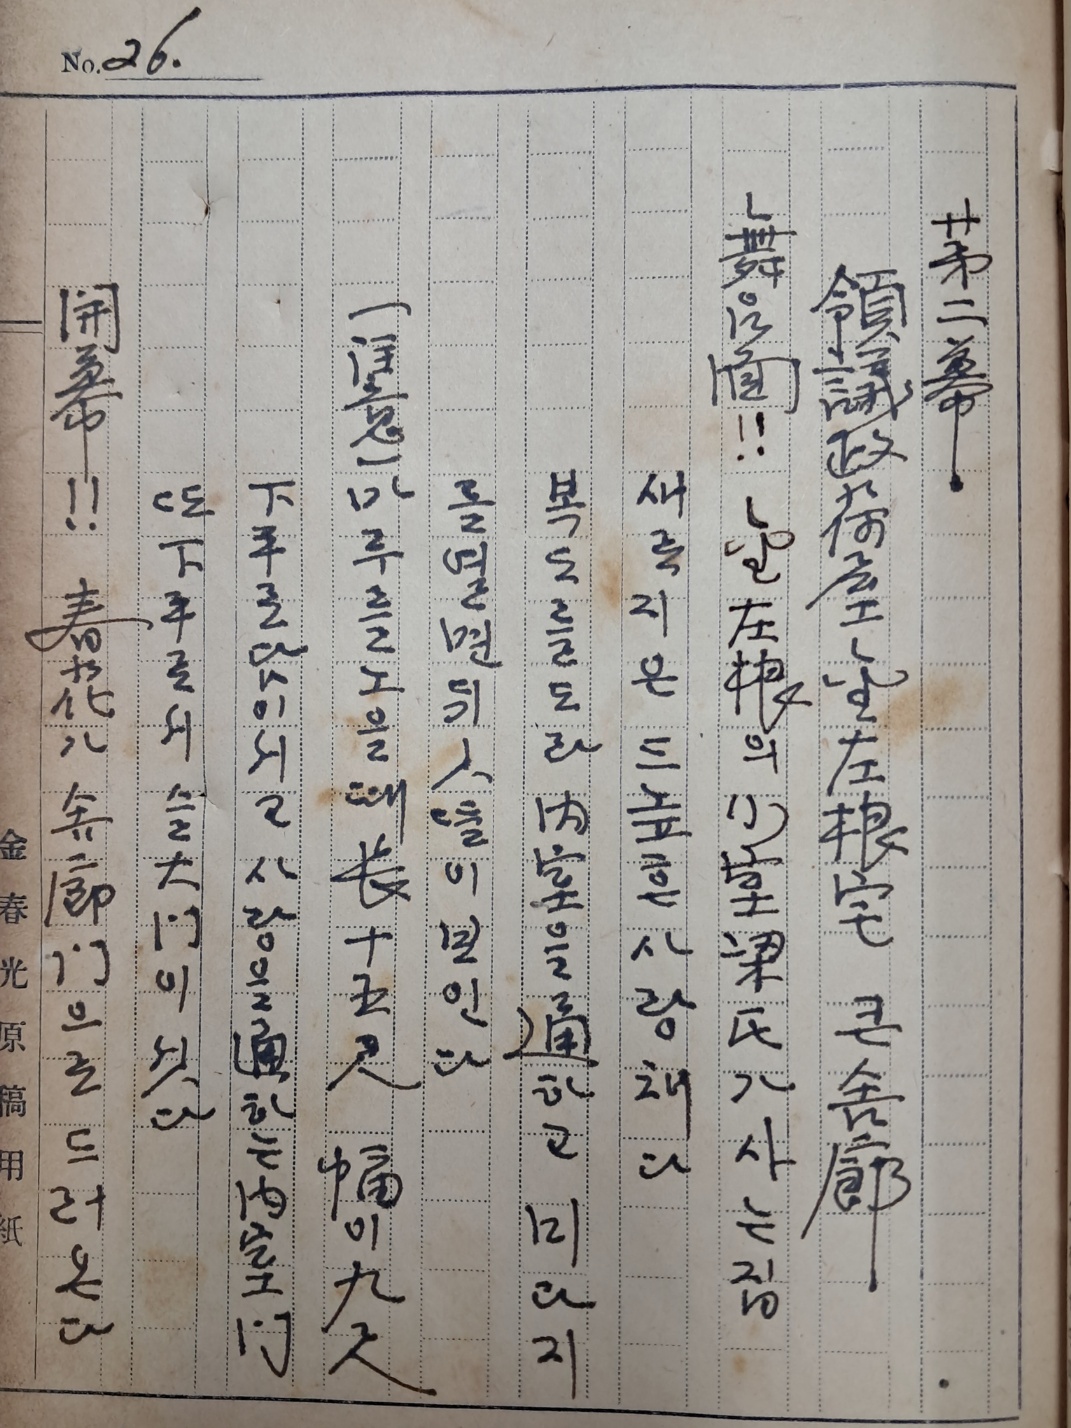 No. 26.
第二幕
領議政荷屋金左根宅 큰舍廊
舞台面!! 金左根의 小室梁氏가 사는집
새로지은 드높흔 사랑채다
복도를도라 內室을通하고 미다지
를열면 뒤 人들이 뵈인다
(注意) 마루를노을때 長十五尺 幅이 九尺
下手로 이서고 사랑을通하는內室門
또下手로서 슬大門이 잇다
開幕!! 春花가 舍廊門으로 드러온다
金春光原稿用紙